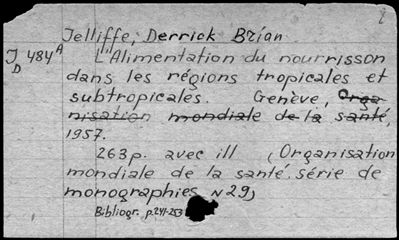 Jelliffe, Derrick Brian
J 484 A
D
L'Alimentation du nourrisson
dans les régions tropicales et
subtropicales. Genève, Orga-
nisation mondiale de la santé,
1957.
263p. avec ill (Organisation
mondiale de la santé. série de
monographies N 29)
Bibliogr. p.241-253